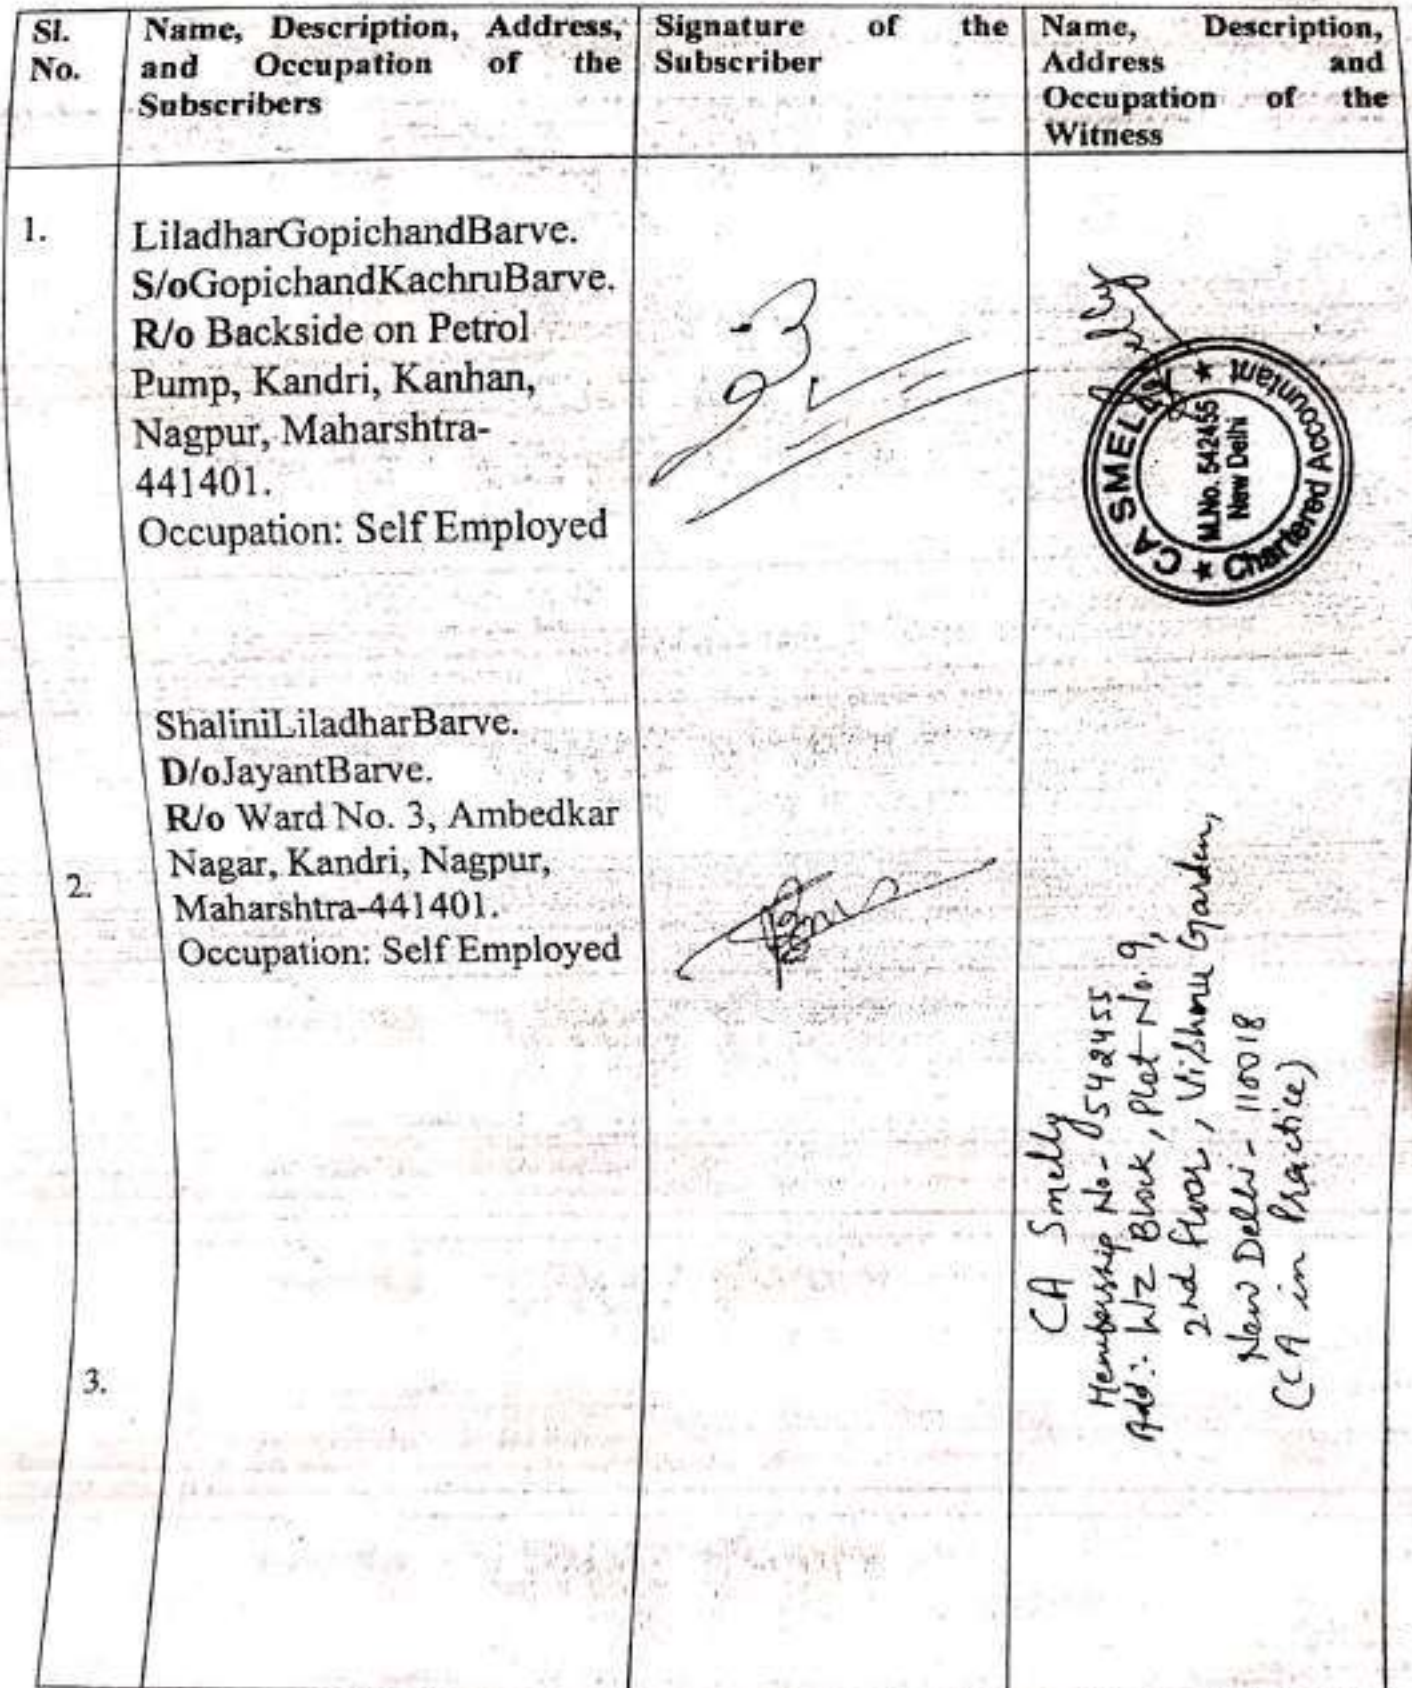 Sl.
No.
Name, Description, Address,
and Occupation of the
Subscribers
Signature of the
Subscriber
Name, Description,
Address and
Occupation of the
Witness
1.
LiladharGopichandBarve.
S/oGopichandKachruBarve.
R/o Backside on Petrol
Pump, Kandri, Kanhan,
Nagpur, Maharshtra-
441401.
Occupation: Self Employed
CA SMELLY
★ Chartered Accountant ★
M.No. 542455
New Delhi
2.
ShaliniLiladharBarve.
D/oJayantBarve.
R/o Ward No. 3, Ambedkar
Nagar, Kandri, Nagpur,
Maharshtra-441401.
Occupation: Self Employed
CA Smelly
Membership No- 542455
Add:- WZ Block, Plot No. 9,
2nd floor, Vishnu Garden,
New Delhi - 110018
(CA in Practice)
3.